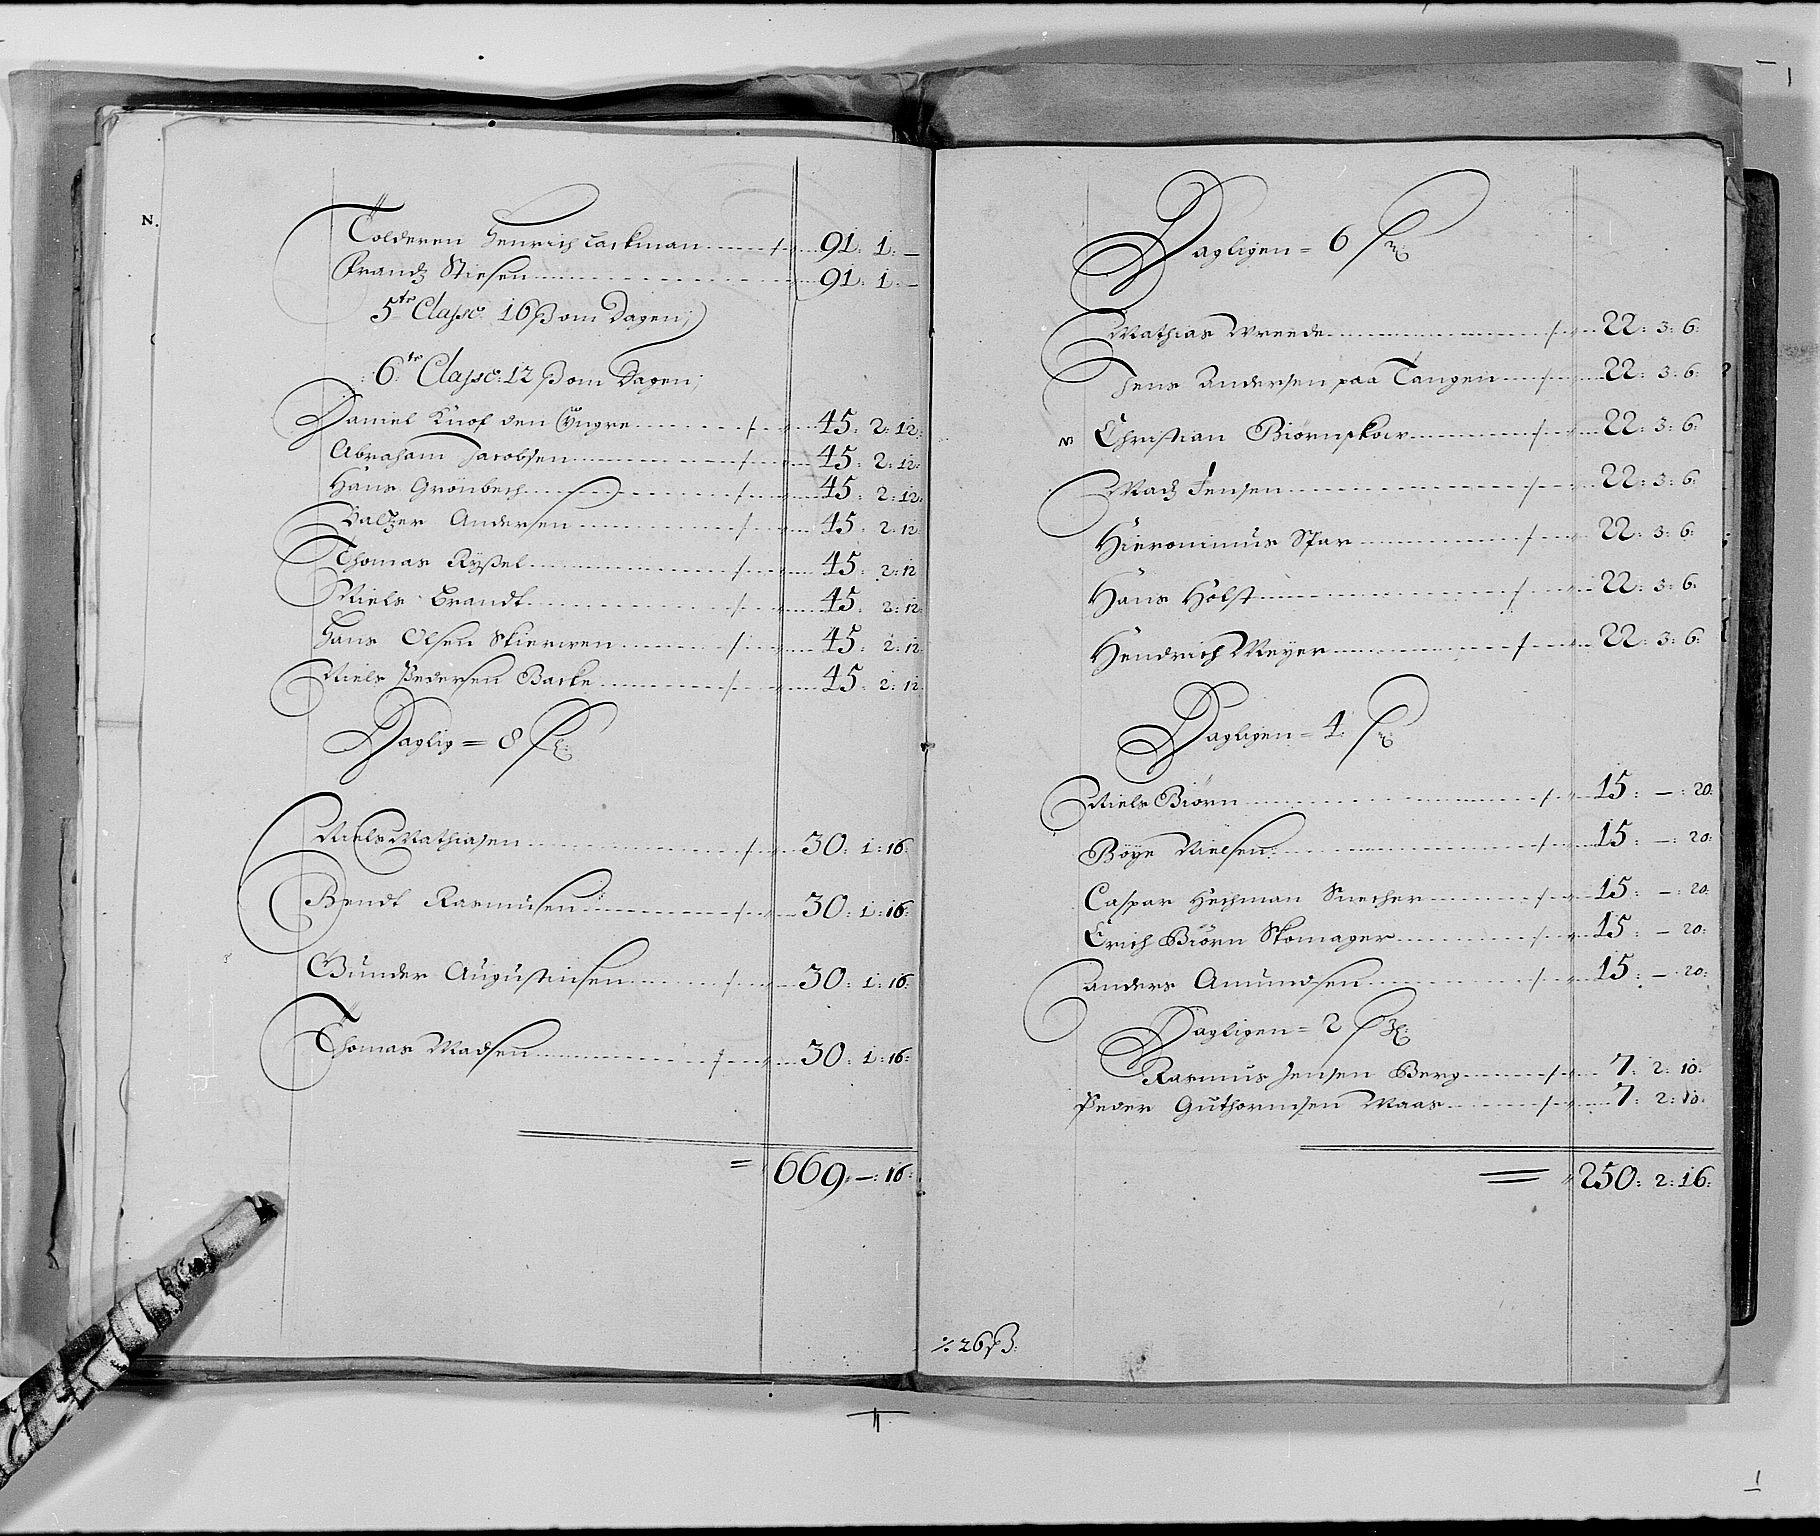 N.
Tolderen Henrich Lackman 91: 1: –
Frandz Stiesen 91: 1: –
5te Classe: 16 ß om Dagen;
6te Classe: 12 ß om Dagen;
Daniel Knof den Yngre 45: 2: 12:
Abraham Jacobsen 45: 2: 12:
Hans Grönbech 45: 2: 12:
Baltzer Andersen 45: 2: 12
Thomas Ryssel 45: 2: 12
Niels Brandt 45: 2: 12:
Hans Olsen Skierven 45: 2: 12
Niels Pedersen Backe 45: 2: 12
Daglig = 8 ß
Niels Mathiasen 30: 1: 16:
Bendt Rasmusen 30: 1: 16:
Gunder Augustinsen 30: 1: 16:
Thomas Madsen 30: 1: 16:
= 669: –: 16:
Dagligen = 6 ß
Mathias Wreede 22: 3: 6:
Jens Andersen paa Tangen 22: 3: 6:
Christian Biörnskov 22: 3: 6:
Madz Jensen 22: 3: 6:
Hieronimus Spar 22: 3: 6:
Hans Holst 22: 3: 6:
Hendrich Meyer 22: 3: 6:
Dagligen = 4 ß
Niels Biörn 15: –: 20:
Böye Nielsen 15: –: 20:
Caspar Hechman Snecher 15: –: 20:
Erich Biörn Skomager 15: – 20:
Anders Amundsen 15: –: 20:
Dagligen = 2 ß
Rasmus Jensen Berg 7: 2: 10:
Peder Guthormsen Maas 7: 2: 10:
= 250: 2: 16:
% 26 ß: